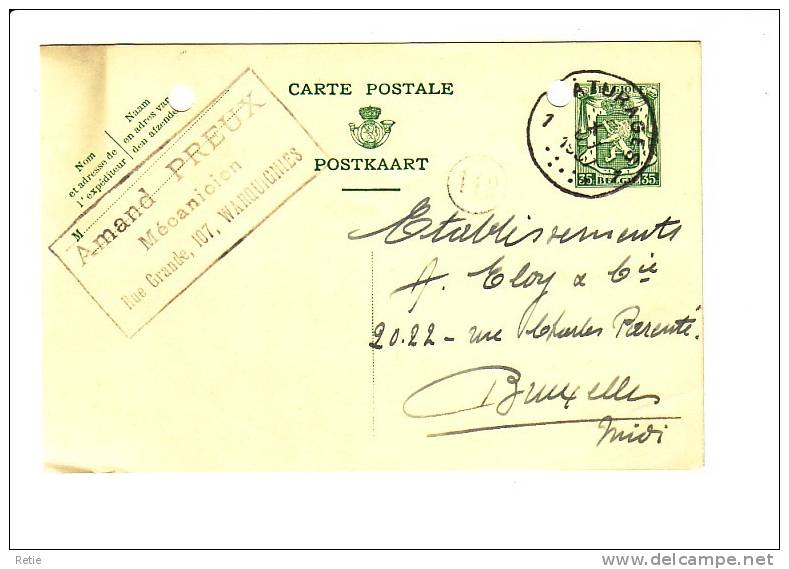 CARTE POSTALE
POSTKAART
Nom
et adresse de
l'expéditeur
Naam
en adres van
den afzender
M
Amand PREUX
Mécanicien
Rue Grande, 107, WARQUIGNIES
PÂTURAGES
1
35 BELGIË 35
Etablissements
A. Eloy & Cie
20.22 - rue Charles Parenté.
Bruxelles
midi
Retie
http://www.delcampe.net